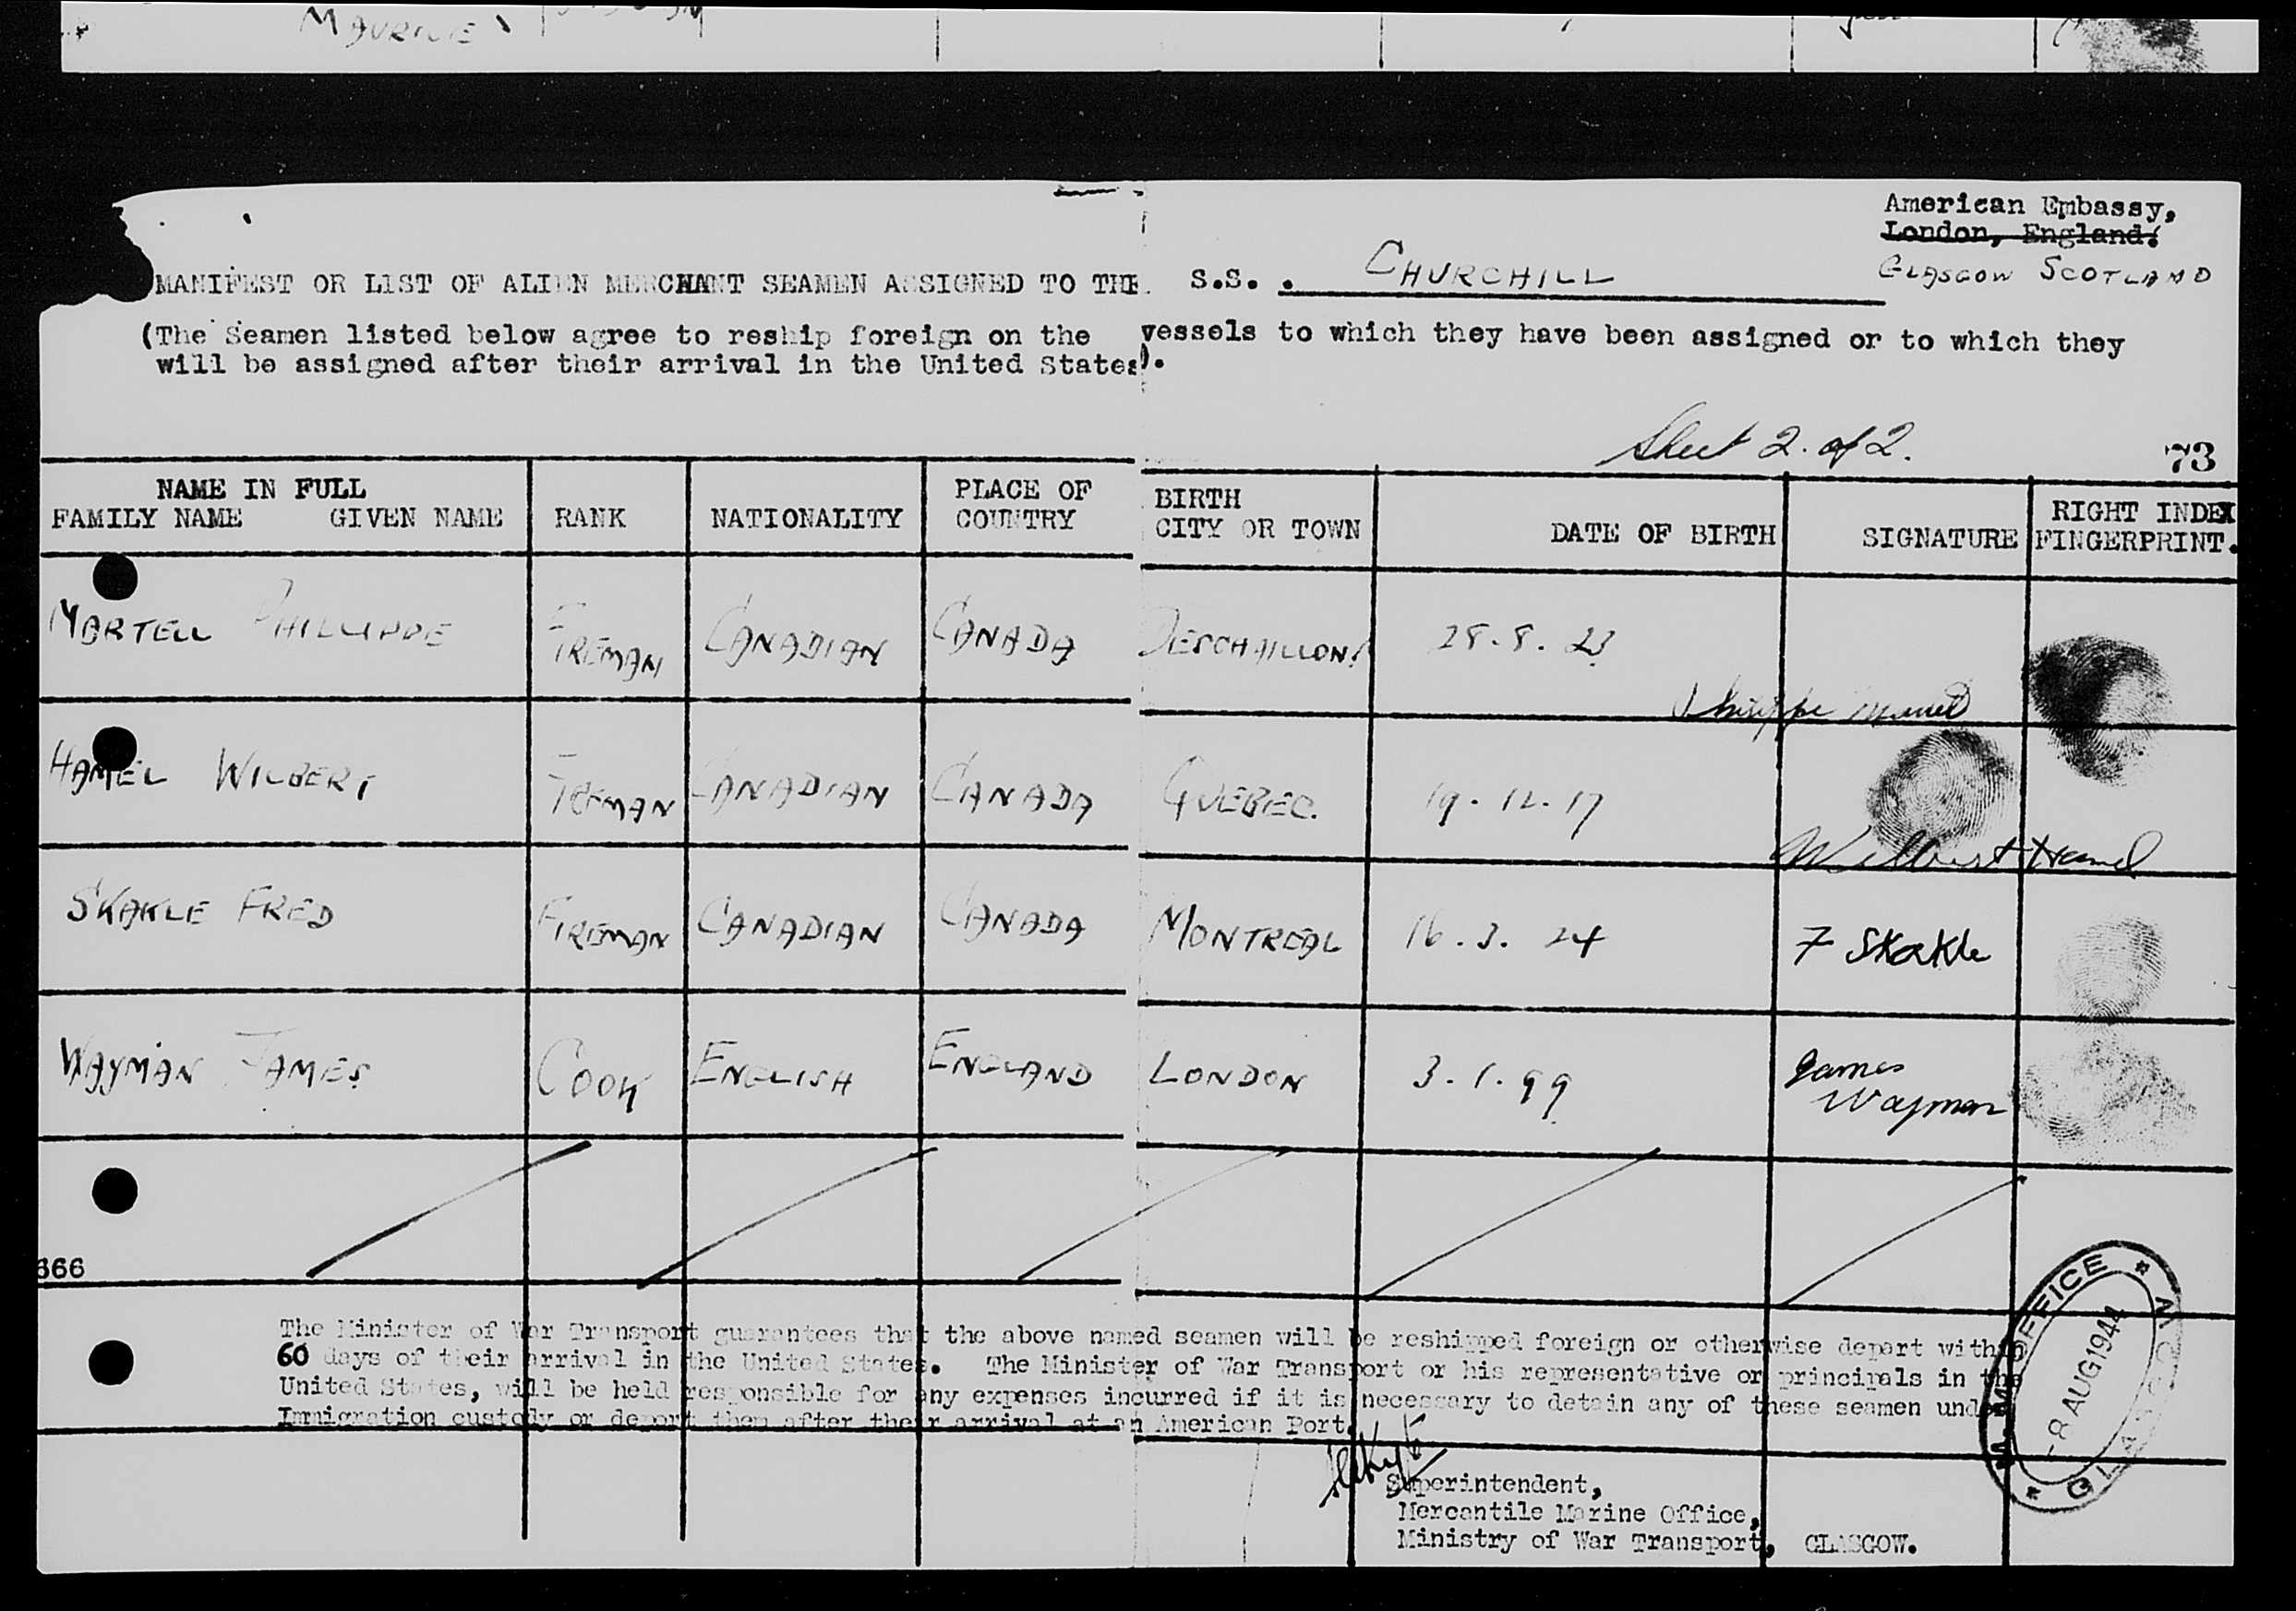 MAURICE
American Embassy,
London, England.
GLASGOW SCOTLAND
MANIFEST OR LIST OF ALIEN MERCHANT SEAMEN ASSIGNED TO THE S.S. . CHURCHILL
(The Seamen listed below agree to reship foreign on the vessels to which they have been assigned or to which they
will be assigned after their arrival in the United States).
Sheet 2. of 2.
73
NAME IN FULL PLACE OF BIRTH RIGHT INDEX
FAMILY NAME GIVEN NAME RANK NATIONALITY COUNTRY CITY OR TOWN DATE OF BIRTH SIGNATURE FINGERPRINT.
MARTELL PHILLIPPE FIREMAN CANADIAN CANADA DESCHAILLONS 28.8.23
Philippe Martel
HAMEL WILBERT CANADIAN CANADA QUEBEC. 19.12.17
Wilbert Hamel
SKAKLE FRED FIREMAN CANADIAN CANADA MONTREAL 16.3.24 F Skakle
WAYMAN JAMES COOK ENGLISH ENGLAND LONDON 3.1.99 James
Wayman
666
The Minister of War Transport guarantees that the above named seamen will be reshipped foreign or otherwise depart within
60 days of their arrival in the United States. The Minister of War Transport or his representative or principals in the
United States, will be held responsible for any expenses incurred if it is necessary to detain any of these seamen under
Immigration custody or deport them after their arrival at an American Port.
Superintendent,
Mercantile Marine Office,
Ministry of War Transport, GLASGOW.
M.M. OFFICE * GLASGOW *
-8 AUG 1944